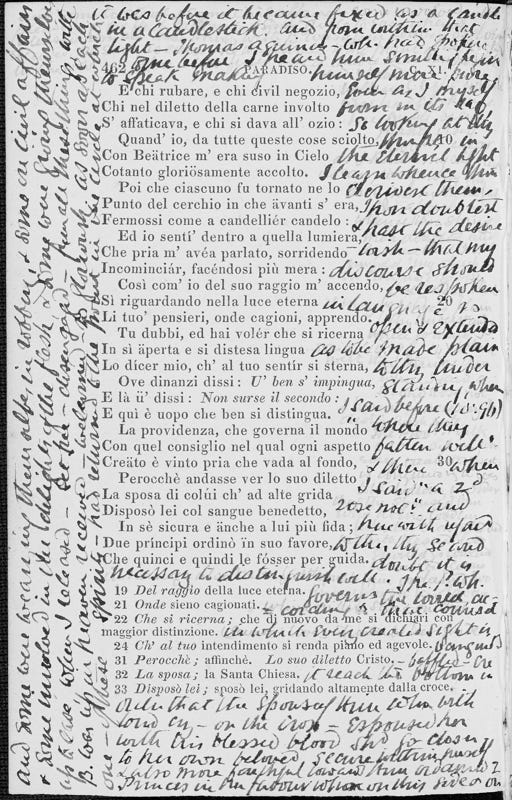 it was before it became fixed as a candle
in a candlestick. And from within that
light – Thomas Aquinas – wh. had spoken
to me before I heard him smiling begin
to speak making himself more pure
462 PARADISO, XI.
E chi rubare, e chi civil negozio,
Chi nel diletto della carne involto
S' affaticava, e chi si dava all' ozio:
Quand' io, da tutte queste cose sciolto, 10
Con Beätrice m' era suso in Cielo
Cotanto gloriösamente accolto.
Poi che ciascuno fu tornato ne lo
Punto del cerchio in che ävanti s' era,
Fermossi come a candelliér candelo:
Ed io sentí' dentro a quella lumiera,
Che pria m' avéa parlato, sorridendo
Incominciár, facéndosi più mera:
Così com' io del suo raggio m' accendo,
Sì riguardando nella luce eterna 20
Li tuo' pensieri, onde cagioni, apprendo.
Tu dubbi, ed hai volér che si ricerna
In sì äperta e sì distesa lingua
Lo dícer mio, ch' al tuo sentír si sterna,
Ove dinanzi dissi: U' ben s' impingua,
E là ü' dissi: Non surse il secondo:
E quì è uopo che ben si distingua.
La providenza, che governa il mondo
Con quel consiglio nel qual ogni aspetto
Creäto è vinto pria che vada al fondo, 30
Perocchè andasse ver lo suo diletto
La sposa di colúi ch' ad alte grida
Disposò lei col sangue benedetto,
In sè sicura e änche a lui più fida;
Due príncipi ordinò in suo favore,
Che quinci e quindi le fósser per guida.
Even as I myself
from its ray
So looking at thy
himself in
the eternal light
I learn whence thou
derivest them.
Thou doubtest
& hast the desire
wish – that my
discourse should
be respoken
in language so
open & extended
as to be made plain
to thy under
standing, when
I said before (10.96)
"where they
fatten well"
& there when
I said "a 2d
rose not" and
here with regard
to thy second
doubt it is
necessary to distinguish well. The P. wh.
governs the world, ac-
cording to that counsel
in which every created sight is
vanquished
– baffled – ere
it reach the bottom in
19 Del raggio della luce eterna.
21 Onde sieno cagionati.
22 Che si ricerna; che di nuovo da me si dichiari con
maggior distinzione.
24 Ch' al tuo intendimento si renda piano ed agevole.
31 Perocchè; affinchè. Lo suo diletto Cristo,
32 La sposa; la Santa Chiesa.
33 Dispósò lei; sposò lei, gridando altamente dalla croce.
order that the Spouse of Him who with
loud cry – on the Cross – Espoused her
with His blessed blood shd. go close
to her own beloved, secure within herself
& also more faithful toward Him ordained 2
Princes in her favour whom on this side & on
and some were wearing themselves in robbery, & some in civil affairs
& some involved in the delights of the flesh & some were giving themselves
up to ease, when I released – set free – disengaged – from all these things, with
B. was up in heaven received – welcomed so gloriously as soon as each
one – of these spirits – had returned to the point in the circle at which